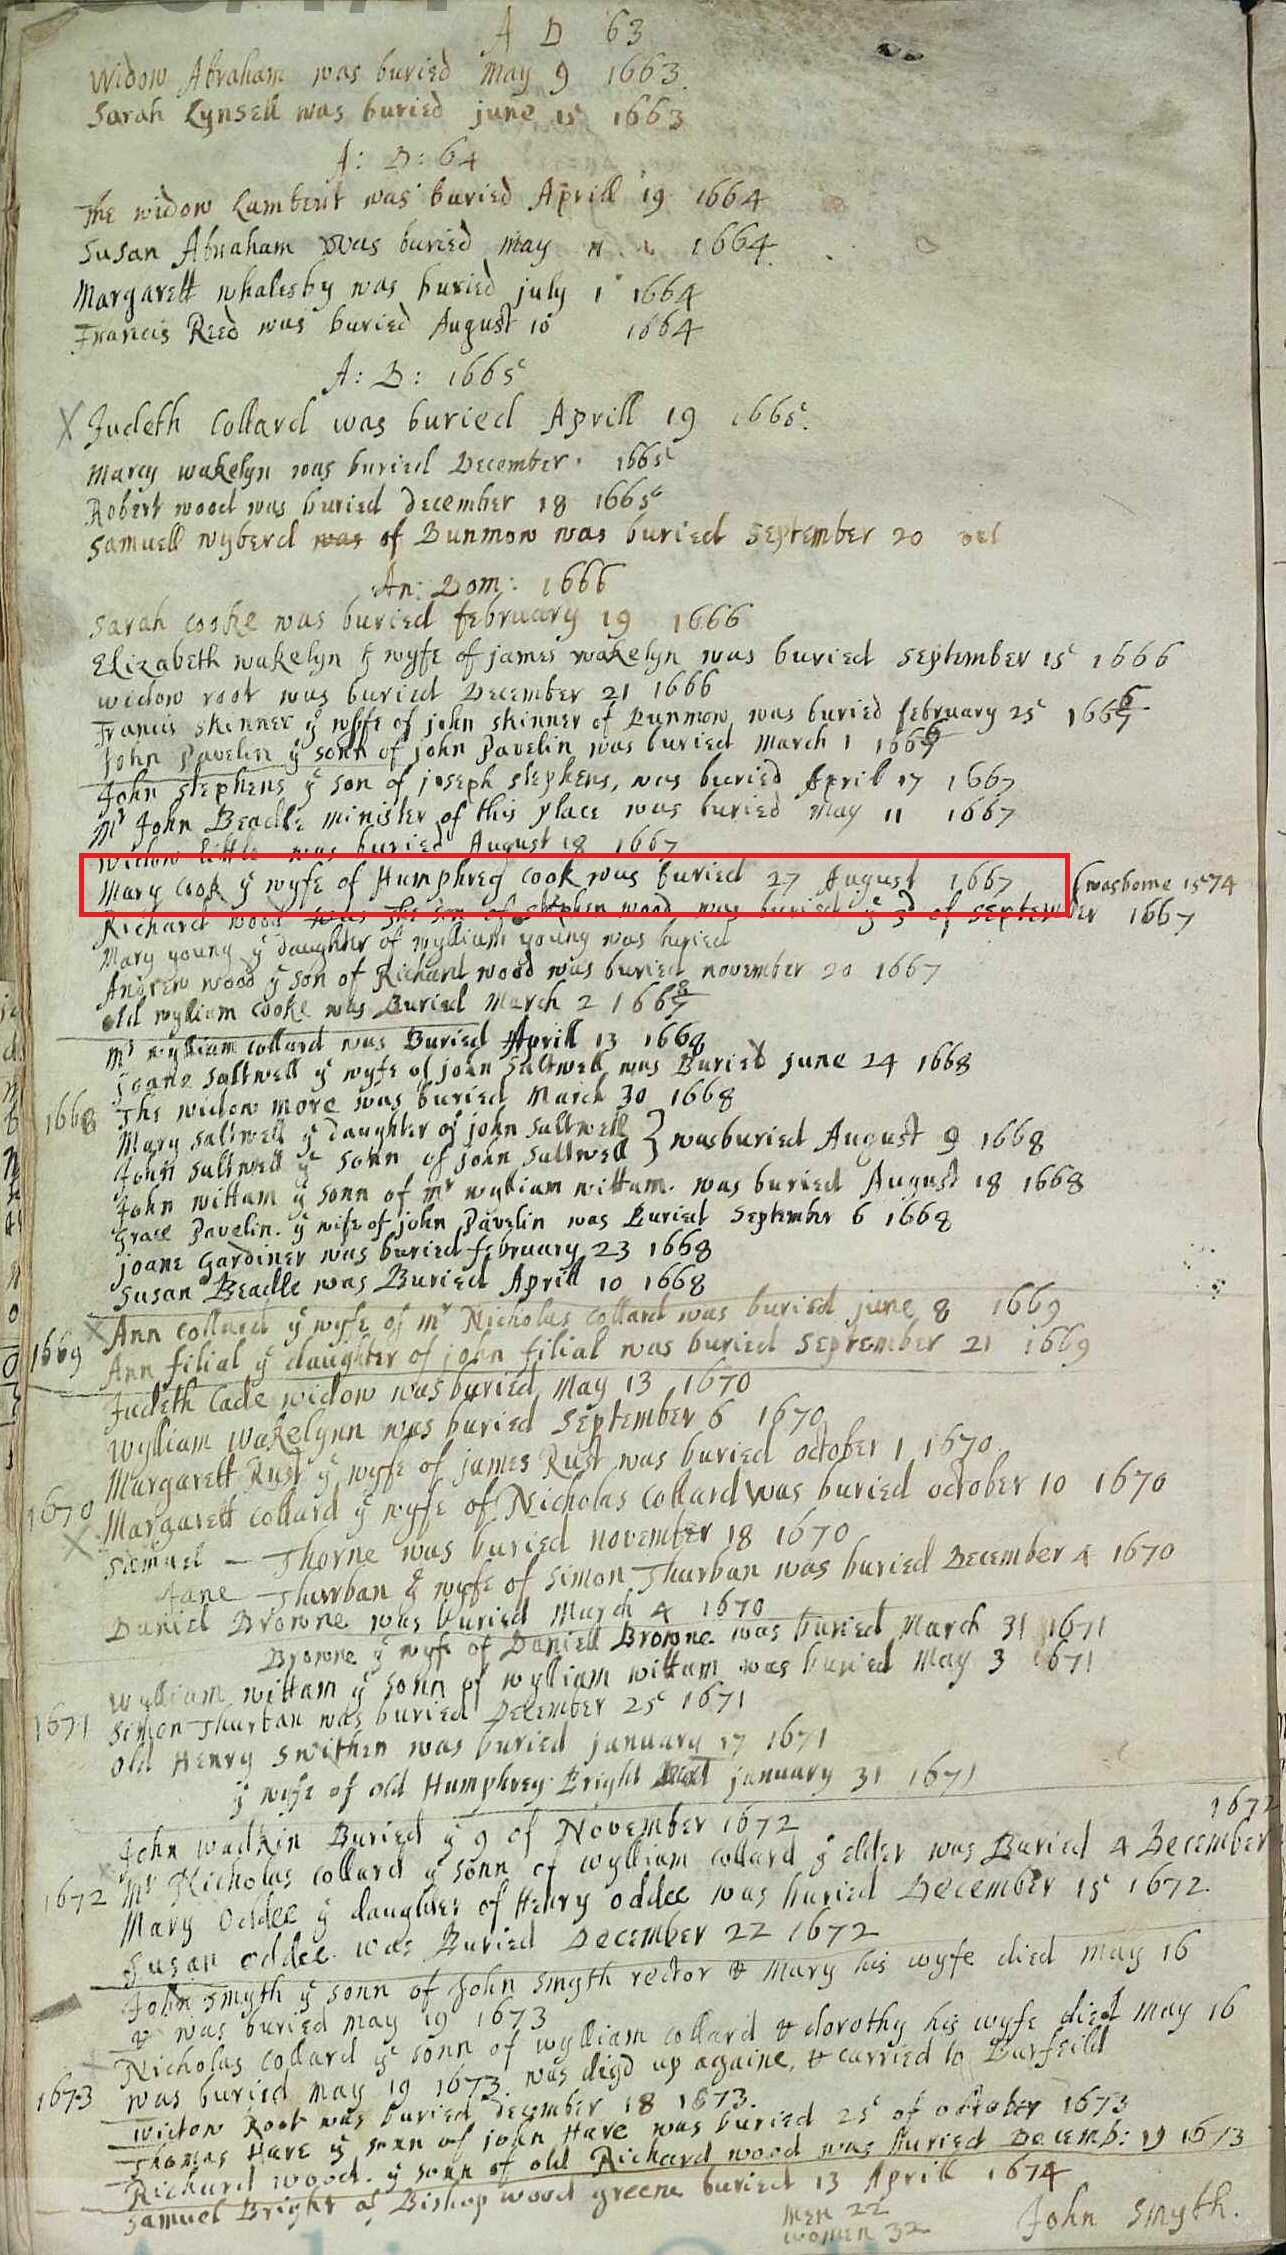 A D 63
Widow Abraham was buried May 9 1663
Sarah Lynsell was buried june 15 1663
A: D: 64
The widow Lambert was buried Aprill 19 1664
Susan Abraham was buried May 11 1664
Margarett whalesby was buried july 1 1664
Francis Reed was buried August 10 1664
A: D: 1665
X Judeth Collard was buried Aprill 19 1665
Marcy wakelyn was buried December 1665
Robert wood was buried December 18 1665
Samuell wyberd was of Dunmow was buried September 20
An: Dom: 1666
Sarah cooke was buried february 19 1666
Elizabeth wakelyn ye wyfe of james wakelyn was buried September 15 1666
widow root was buried December 21 1666
Francis skinner ye wyfe of john skinner of Dunmow was buried february 25 166
John Pavelin ye sonn of john Pavelin was buried March 1 166
John stephens ye son of joseph stephens, was buried April 17 1667
Mr John Beadle minister of this place was buried May 11 1667
widow little was buried August 18 1667
Mary Cook ye wyfe of Humphrey Cook was buried 27 August 1667 was borne 1574
Richard wood was the son of Stephen wood was buried ye 3d of September 1667
Mary young ye daughter of wylliam young was buried
Andrew wood ye son of Richard wood was buried november 20 1667
old wylliam cooke was Buried March 2 166 8/7
Mr wylliam collard was Buried Aprill 13 1668
joane Saltwell ye wyfe of john Saltwell was Buried june 24 1668
1668 The widow more was buried March 30 1668
Mary Saltwell ye daughter of john Saltwell
John Saltwell ye sonn of john Saltwell } was buried August 9 1668
John wittam ye sonn of mr wylliam wittam. was buried August 18 1668
Grace Pavelin. ye wife of john Pavelin was Buried September 6 1668
joane Gardiner was buried february 23 1668
Susan Beadle was Buried Aprill 10 1668
X Ann Collard ye wyfe of mr Nicholas Collard was buried june 8 1669
1669 Ann filial ye daughter of john filial was buried September 21 1669
Judeth Cade widow was buried May 13 1670
wylliam wakelynn was buried September 6 1670
Margarett Rust ye wyfe of james Rust was buried october 1 1670
1670 Margarett Collard ye wyfe of Nicholas Collard was buried october 10 1670
X Samuel — Thorne was buried november 18 1670
Jane Thurban ye wyfe of Simon Thurban was buried December 4 1670
Daniel Browne was buried March 4 1670
Browne ye wyfe of Daniell Browne was buried March 31 1671
wylliam wittam ye sonn of wylliam wittam was buried May 3 1671
1671 Simon Thurban was buried December 25 1671
old Henry Swithen was buried january 17 1671
ye wyfe of old Humphrey Bright january 31 1671
John wadkin Buried ye 9 of November 1672
1672
Mr Nicholas Collard ye sonn of wylliam collard ye elder was Buried 4 December
1672 Mary Oddee ye daughter of Henry Oddee was buried December 15 1672.
Susan oddee was Buried December 22 1672
John Smyth ye sonn of John Smyth rector & Mary his wyfe died may 16
& was buried may 19 1673
Nicholas Collard ye sonn of wylliam collard & dorothy his wyfe died may 16
1673 was buried may 19 1673. was digd up againe, & carried to Barfeild
widow Root was buried December 18 1673.
Thomas Hare ye sonn of john Hare was buried 25 of october 1673
Richard wood. ye sonn of old Richard wood was buried Decemb: 19 1673
Samuel Bright of Bishop wood greene buried 13 Aprill 1674
Men 22
women 32
John Smyth.